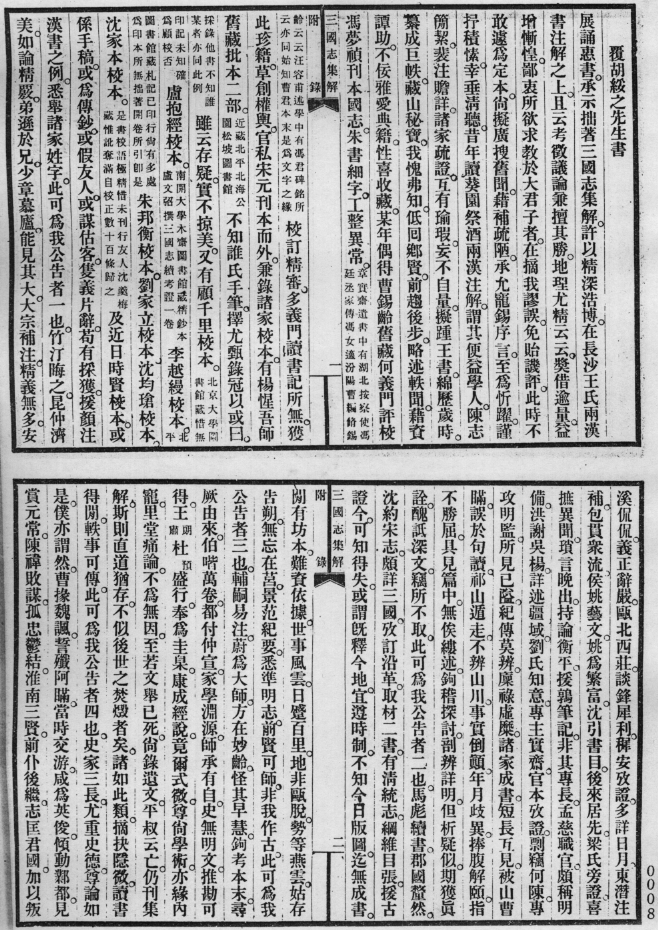 覆胡綏之先生書
展誦惠書承示拙著三國志集解許以精深浩博在長沙王氏兩漢
書注解之上且云考徵議論兼擅其勝地理尤精云云獎借逾量益
增慚惶鄙衷所欲求教於大君子者在摘我謬誤免貽譏評此時不
敢遽爲定本尙擬廣搜舊聞藉補疏陋承允寵錫序言至爲忻躍謹
抒積愫幸垂清聽昔年讀葵園祭酒兩漢注解謂其便益學人陳志
簡絜裴注贍詳諸家疏證互有瑜瑕妄不自量擬踵王書綿歷歲時
纂成巨帙藏山秘寶我愧弗知低囘鄉賢前趨後步略述軼聞藉資
譚助不佞雅愛典籍性喜收藏某年偶得曹錫齡舊藏何義門評校
馮夢禎刊本國志朱書細字工整異常章實齋遺書中有湖北按察使馮廷丞家傳馮女適汾陽曹編脩錫
三國志集解 附錄 一
齡云云汪容甫述學中有馮君碑銘所云亦同始知曹君本末是爲文字之緣校訂精審多義門讀書記所無獲
此珍籍草創權輿官私宋元刊本而外兼錄諸家校本有楊惺吾師
舊藏批本二部近藏北平北海公園松坡圖書館不知誰氏手筆擇尤甄錄冠以或曰
採錄他書不知誰某者亦同此例雖云存疑實不掠美又有顧千里校本北京大學圖書館藏惜無
印記未知確爲顧校否盧抱經校本南開大學木齋圖書館藏精鈔本盧文弨撰三國志續考證一卷李越縵校本北平
圖書館藏札記已印行尙有多處爲印本所無拙著開卷所引卽是朱邦衡校本劉家立校本沈均瑲校本
沈家本校本是書校語極精惜未刊行友人沈羹梅藏惟訛奪滿目校正數十百條歸之及近日時賢校本或
係手稿或爲傳鈔或假友人或謀估客隻義片辭苟有採獲援顏注
漢書之例悉舉諸家姓字此可爲我公告者一也竹汀晦之昆仲濟
美如論精嚴弟遜於兄少章慕廬能見其大大宗補注精義無多安
溪侃侃義正辭嚴甌北西莊談鋒犀利穉安攷證多詳日月東潛注
補包貫衆流侯姚藝文姚爲繁富沈引書目後來居先梁氏旁證喜
摭異聞瑣言晚出持論衡平援鶉筆記非其專長孟慈職官頗稱明
備洪謝吳楊詳述疆域劉氏知意專主實齋官本攷證剽竊何陳專
攻明監所見已隘紀傳莫辨廩祿虛糜諸家成書短長互見被山曹
瞞誤於句讀祁山遁走不辨山川事實倒顚年月歧異捧腹解頤指
不勝屈具見篇中無俟縷述鉤稽探討剖辨詳明但析疑似期獲眞
詮醜詆深文竊所不取此可爲我公告者二也馬彪續書郡國釐然
沈約宋志頗詳三國攷訂沿革取材二書有清統志綱維目張援古
證今可知得失或謂旣釋今地宜遵時制不知今日版圖迄無成書
三國志集解 附錄 二
閒有坊本難資依據世事風雲日蹙百里地非甌脫勢等燕雲姑存
告朔無忘在莒景范紀要悉準明志前賢可師非我作古此可爲我
公告者三也輔嗣易注蔚爲大師方在妙齡怪其早慧鉤考本末尋
厥由來伯喈萬卷都付仲宣家學淵源師承有自史無明文推勘可
得王朗肅杜預盛行奉爲圭臬康成經說竟爾式微尊尙學術亦緣內
寵里堂痛論不爲無因至若文舉已死尙錄遺文平叔云亡仍刊集
解斯則直道猶存不似後世之焚燬者矣諸如此類摘抉隱微讀書
得閒軼事可傳此可爲我公告者四也史家三長尤重史德尊論如
是僕亦謂然曹操魏諷誓殲阿瞞當時交游咸爲英俊傾動鄴都見
賞元常陳禕敗謀孤忠鬱結淮南三賢前仆後繼志匡君國加以叛
0008